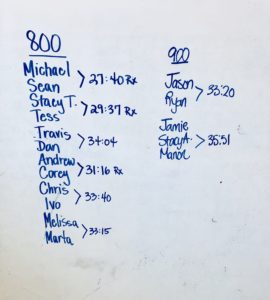 800
Michael
Sean > 27:40 Rx
Stacy T.
Tess > 29:37 Rx
Travis
Dan > 34:04
Andrew
Corey > 31:16 Rx
Chris
Ivo > 33:40
Melissa
Marta > 33:15
900
Jason
Ryan > 33:20
Jamie
Stacy A. > 35:51
Manon